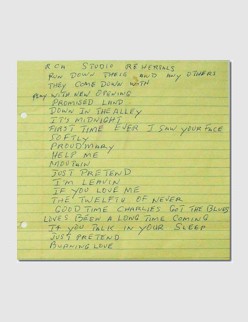 RCA STUDIO REHERSALS
RUN DOWN THESE AND ANY OTHERS
THEY COME DOWN WITH
PLAY WITH NEW OPENING
PROMISED LAND
DOWN IN THE ALLEY
IT'S MIDNIGHT
FIRST TIME EVER I SAW YOUR FACE
SOFTLY
PROUD MARY
HELP ME
MOUNTAIN
JUST PRETEND
I'M LEAVIN
IF YOU LOVE ME
THE TWELFTH OF NEVER
GOOD TIME CHARLIES GOT THE BLUES
LOVES BEEN A LONG TIME COMING
IF YOU TALK IN YOUR SLEEP
JUST PRETEND
BURNING LOVE